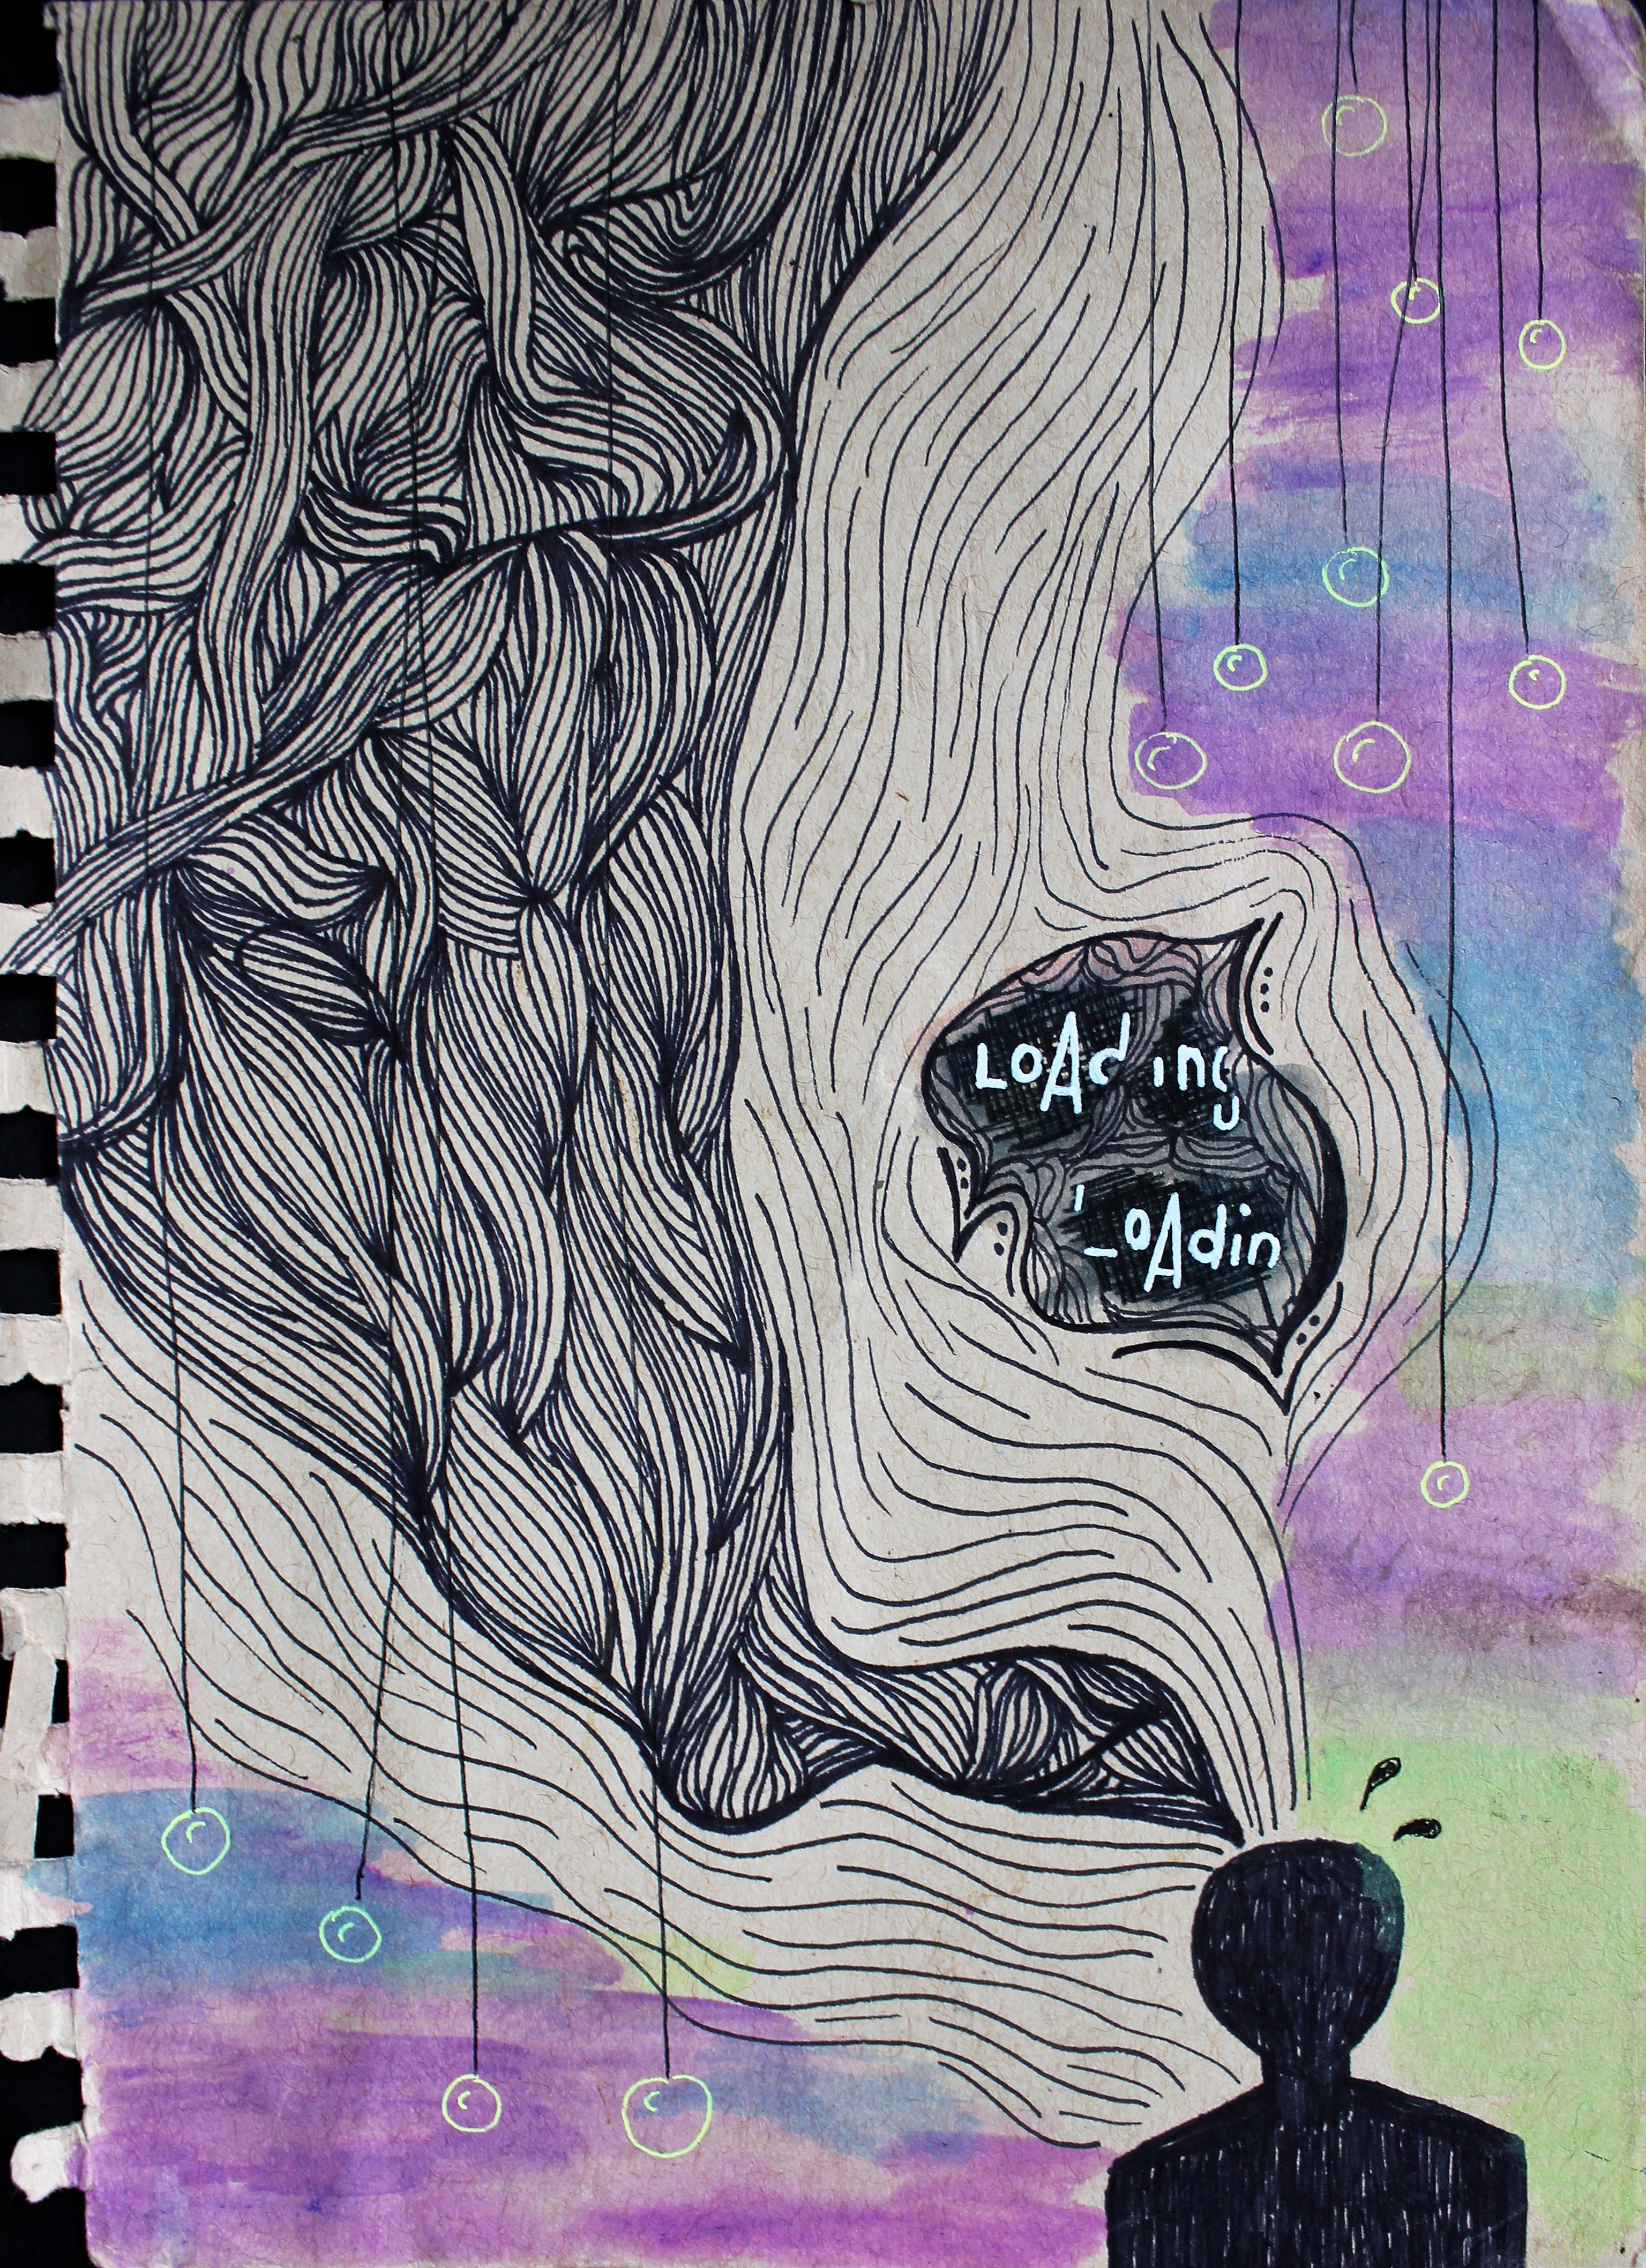 LoAding
LoAdin